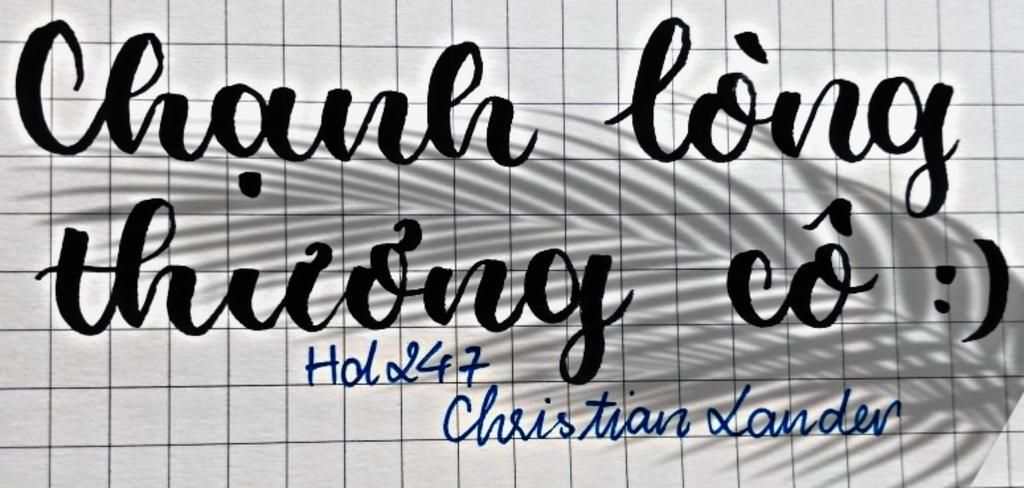 Chạnh lòng
thưởng cô :)
Hd247
Christian Lander